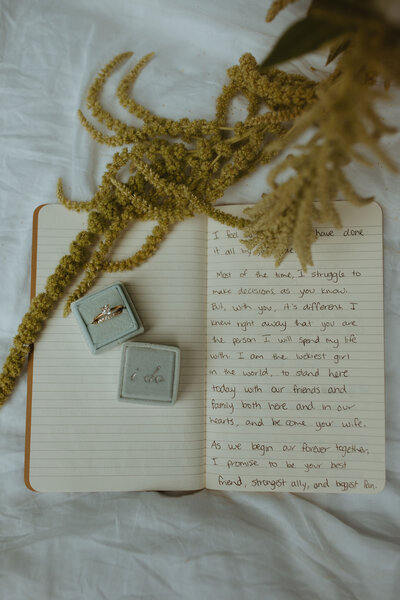 I have done
it all
Most of the time, I struggle to
make decisions, as you know.
But, with you, it's different. I
knew right away that you are
the person I will spend my life
with. I am the luckiest girl
in the world, to stand here
today with our friends and
family both here and in our
hearts, and become your wife.
As we begin our forever together,
I promise to be your best
friend, strongest ally, and biggest fan.
i do